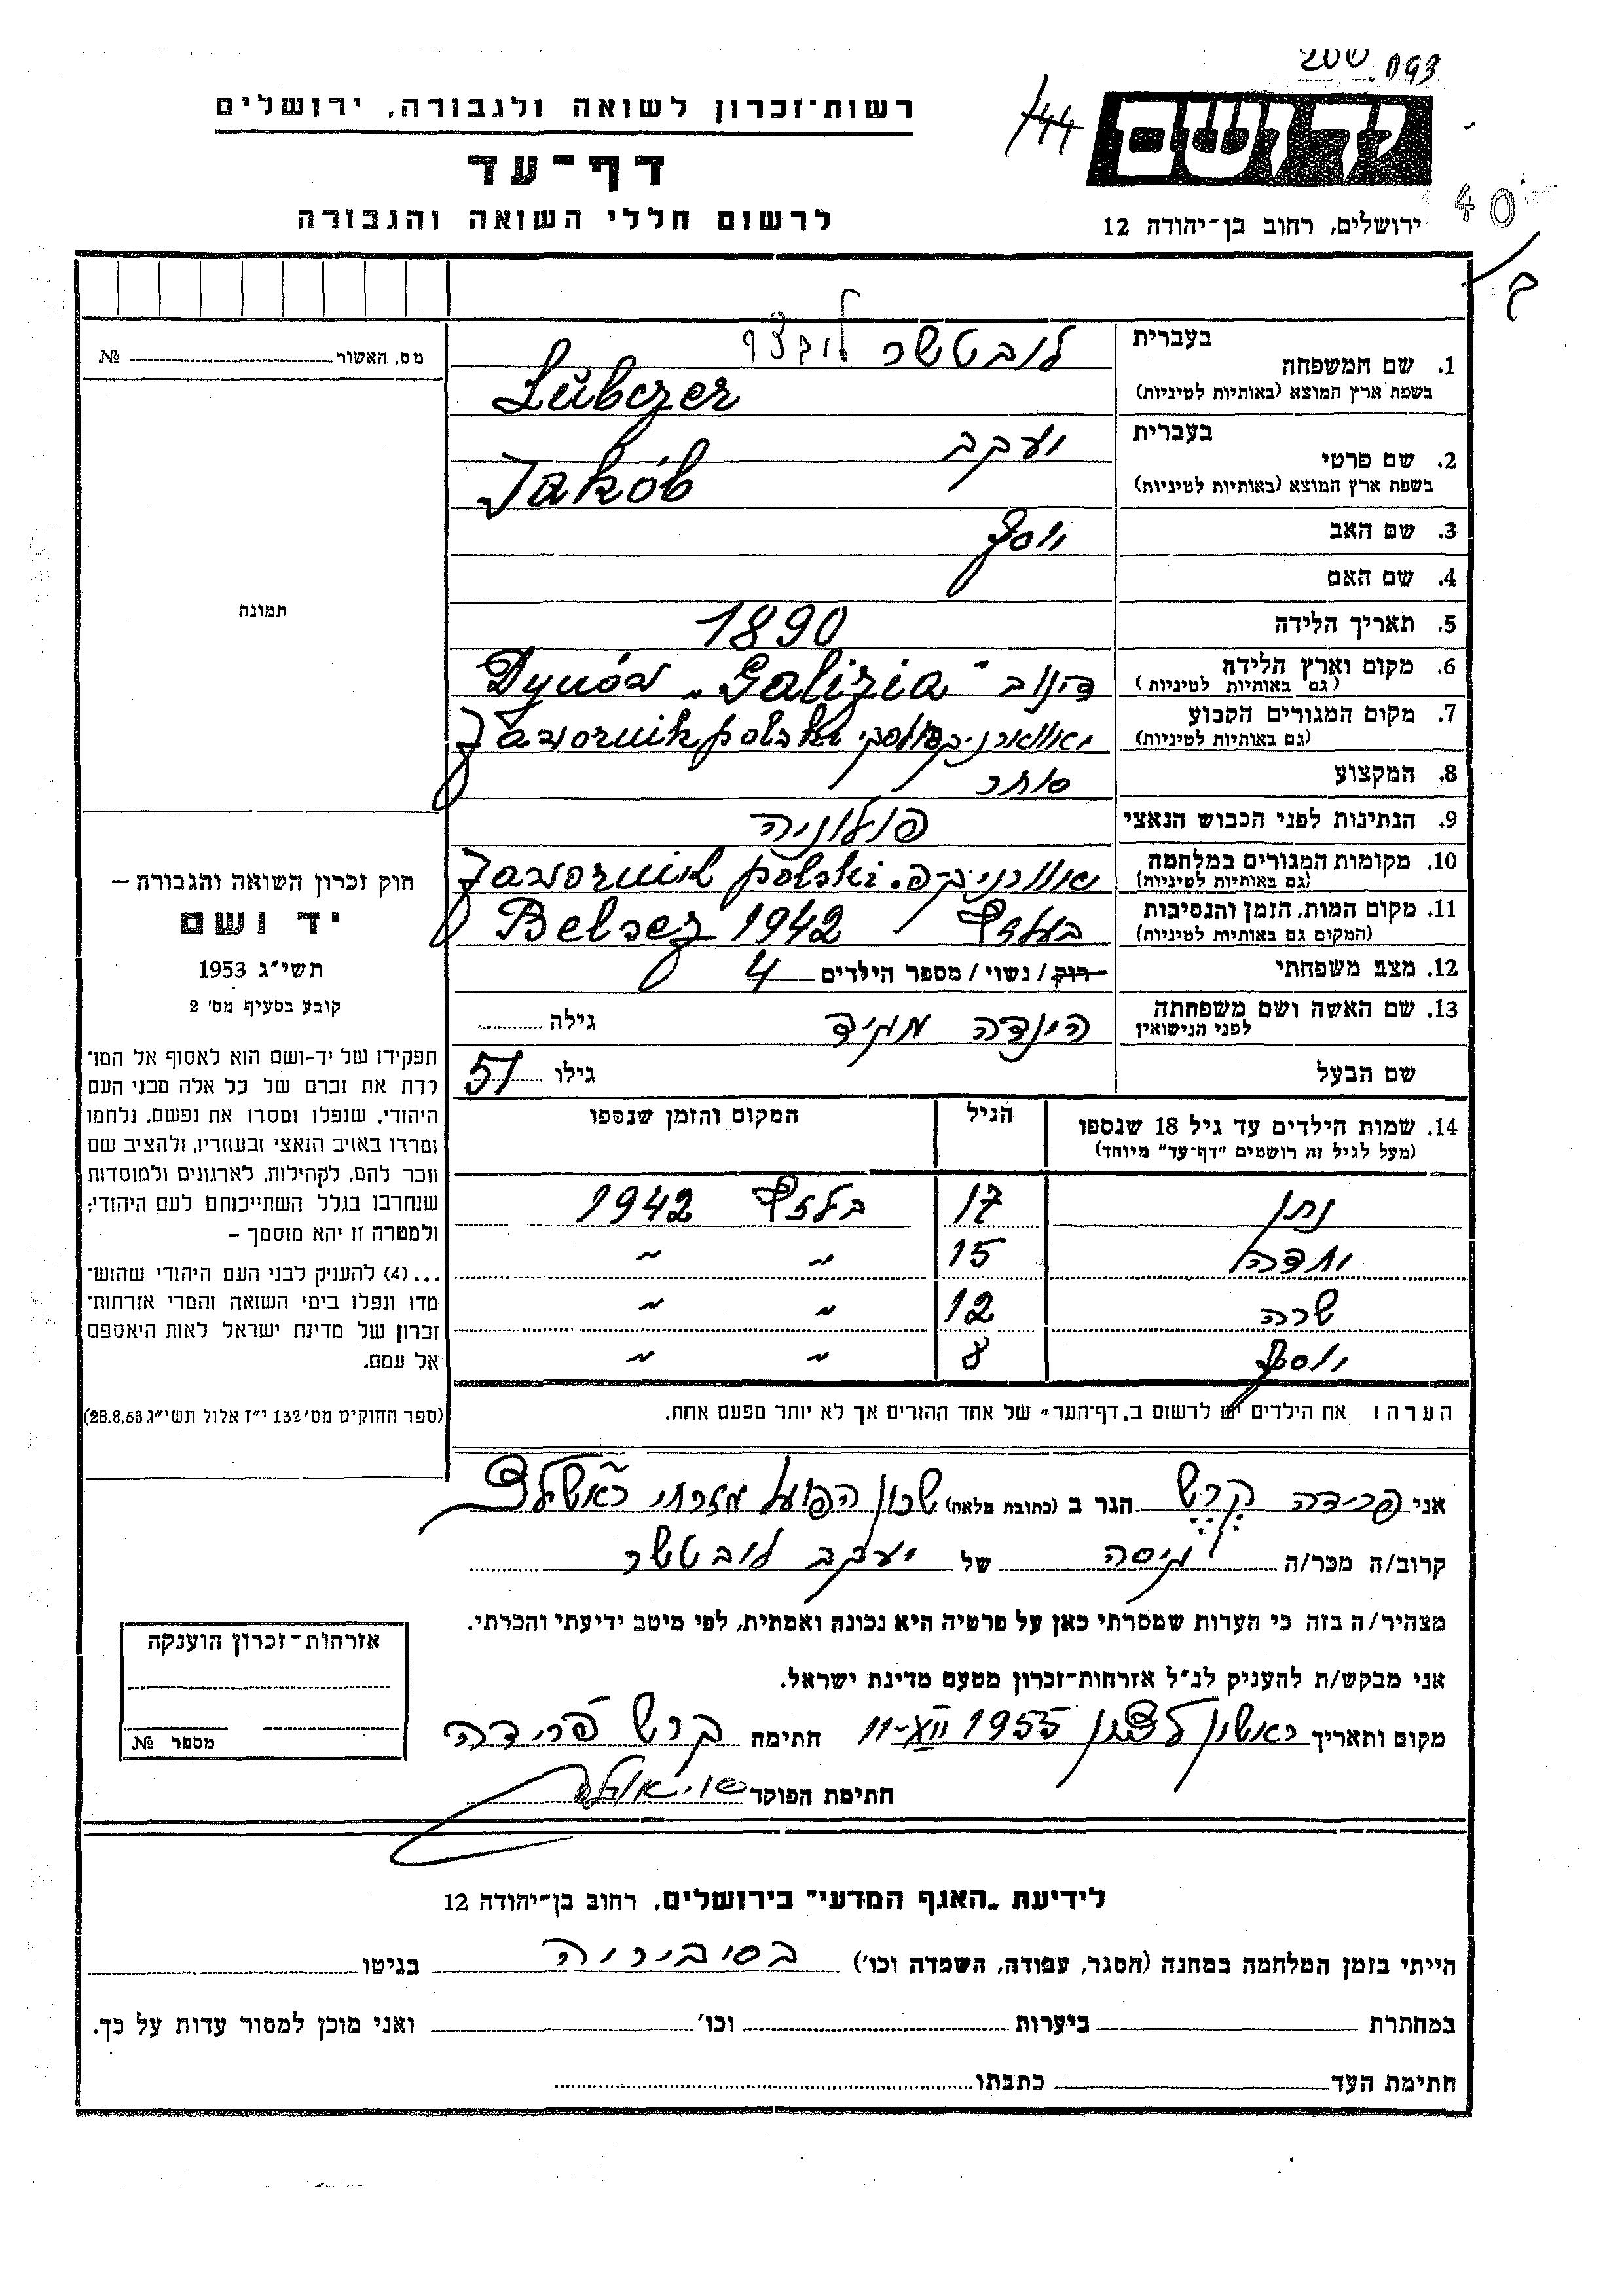 200 093
רשות־זכרון לשואה ולגבורה, ירושלים
144
יד ושם
דף־עד
לרשום חללי השואה והגבורה
ירושלים, רחוב בן־יהודה 12
140
בעברית
לובטשר
1. שם המשפחה
בשפת ארץ המוצא (באותיות לטיניות)
Lübczer
בעברית
יעקב
2. שם פרטי
בשפת ארץ המוצא (באותיות לטיניות)
Jakób
3. שם האב
יוסף
4. שם האם
5. תאריך הלידה
1890
6. מקום וארץ הלידה
(גם באותיות לטיניות)
דינוב Dynów „Galizia"
7. מקום המגורים הקבוע
(גם באותיות לטיניות)
יאוואורניק פולסקי Jawornik polski
8. המקצוע
סוחר
9. הנתינות לפני הכבוש הנאצי
פולוניה
10. מקומות המגורים במלחמה
(גם באותיות לטיניות)
יאוורניק־פ. Jawornik polski
11. מקום המות, הזמן והנסיבות
(המקום גם באותיות לטיניות)
בעלזץ Belzez 1942
12. מצב משפחתי
רוק / נשוי / מספר הילדים 4
13. שם האשה ושם משפחתה
לפני הנישואין
הינדה מגיד
גילה
שם הבעל
גילו 51
14. שמות הילדים עד גיל 18 שנספו
(מעל לגיל זה רושמים "דף־עד" מיוחד)
הגיל
המקום והזמן שנספו
נתן 17 בלזץ 1942
יהודה 15 " "
שרה 12 " "
יוסף 8 " "
הערה: את הילדים יש לרשום ב„דף־העד" של אחד ההורים אך לא יותר מפעם אחת.
מס. האשור №
תמונה
חוק זכרון השואה והגבורה —
יד ושם
תשי"ג 1953
קובע בסעיף מס' 2
תפקידו של יד־ושם הוא לאסוף אל המו־
לדת את זכרם של כל אלה מבני העם
היהודי, שנפלו ומסרו את נפשם, נלחמו
ומרדו באויב הנאצי ובעוזריו, ולהציב שם
וזכר להם, לקהילות, לארגונים ולמוסדות
שנחרבו בגלל השתייכותם לעם היהודי;
ולמטרה זו יהא מוסמך —
...(4) להעניק לבני העם היהודי שהוש־
מדו ונפלו בימי השואה והמרי אזרחות־
זכרון של מדינת ישראל לאות היאספם
אל עמם.
(ספר החוקים מס' 132 י"ז אלול תשי"ג 28.8.53)
אני פרידה קרש הגר ב (כתובת מלאה) שכון הפועל מזרחי ראשל"צ
קרוב/ה מכר/ה גיסה של יעקב לובטשר
מצהיר/ה בזה כי העדות שמסרתי כאן על פרטיה היא נכונה ואמתית, לפי מיטב ידיעתי והכרתי.
אני מבקש/ת להעניק לנ"ל אזרחות־זכרון מטעם מדינת ישראל.
מקום ותאריך ראשון לציון 11-XII 1955 חתימה קרש פרידה
חתימת הפוקד
אזרחות־זכרון הוענקה
מספר №
לידיעת „האגף המדעי" בירושלים, רחוב בן־יהודה 12
הייתי בזמן המלחמה במחנה (הסגר, עבודה, השמדה וכו') בסיביריה בגיטו
במחתרת ביערות וכו' ואני מוכן למסור עדות על כך.
חתימת העד כתבתו